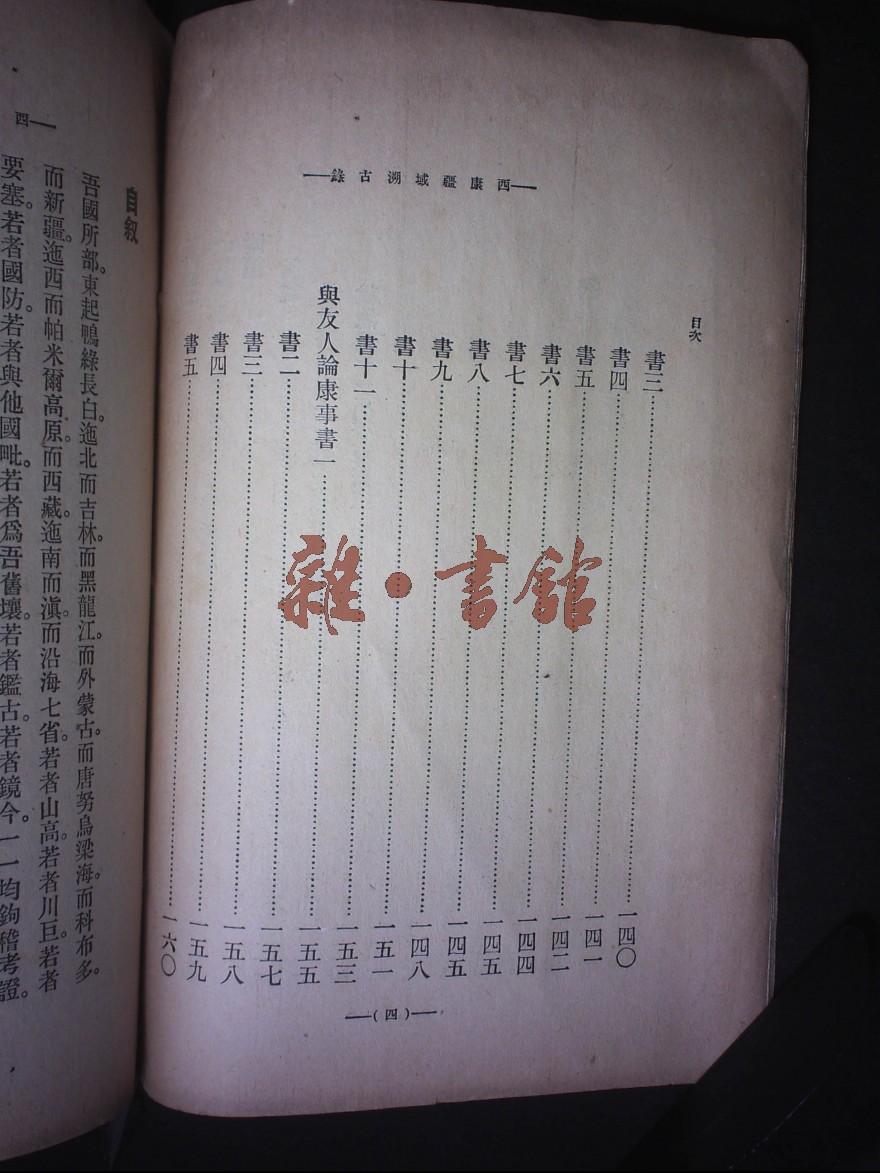 —西康疆域溯古錄—
目次
書三……一四〇
書四……一四一
書五……一四二
書六……一四四
書七……一四五
書八……一四五
書九……一四八
書十……一五一
書十一……一五三
與友人論康事書一……一五五
書二……一五七
書三……一五八
書四……一五九
書五……一六〇
—(四)—
雜·書館
—西
自敘
吾國所部。東起鴨綠長白。迤北而吉林。而黑龍江。而外蒙古。而唐努烏梁海。而科布多。
而新疆。迤西而帕米爾高原。而西藏。迤南而滇。而沿海七省。若者山高。若者川巨。若者
要塞。若者國防。若者與他國毗。若者爲吾舊壤。若者鑑古。若者鏡今。一一均鉤稽考證。